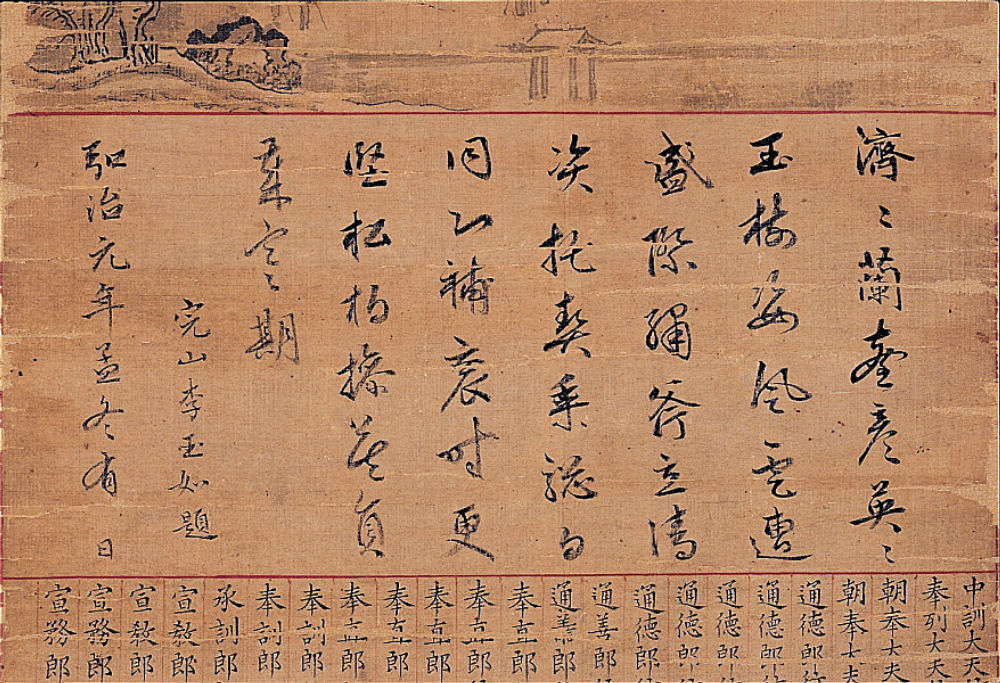 濟〻蘭臺彦英〻
玉樹姿風雲遭
盛際繡斧立清
托契乘驄日
同心補袞時更
堅松柏操莫負
歲寒期
完山李玉如題
弘治元年孟冬有日
中訓大夫
奉列大夫
朝奉大夫
朝奉大夫
通德郎
通德郎
通德郎
通德郎
通德郎
通善郎
通善郎
奉直郎
奉直郎
奉直郎
奉直郎
奉直郎
奉訓郎
奉訓郎
承訓郎
宣敎郎
宣敎郎
宣務郎
宣務郎